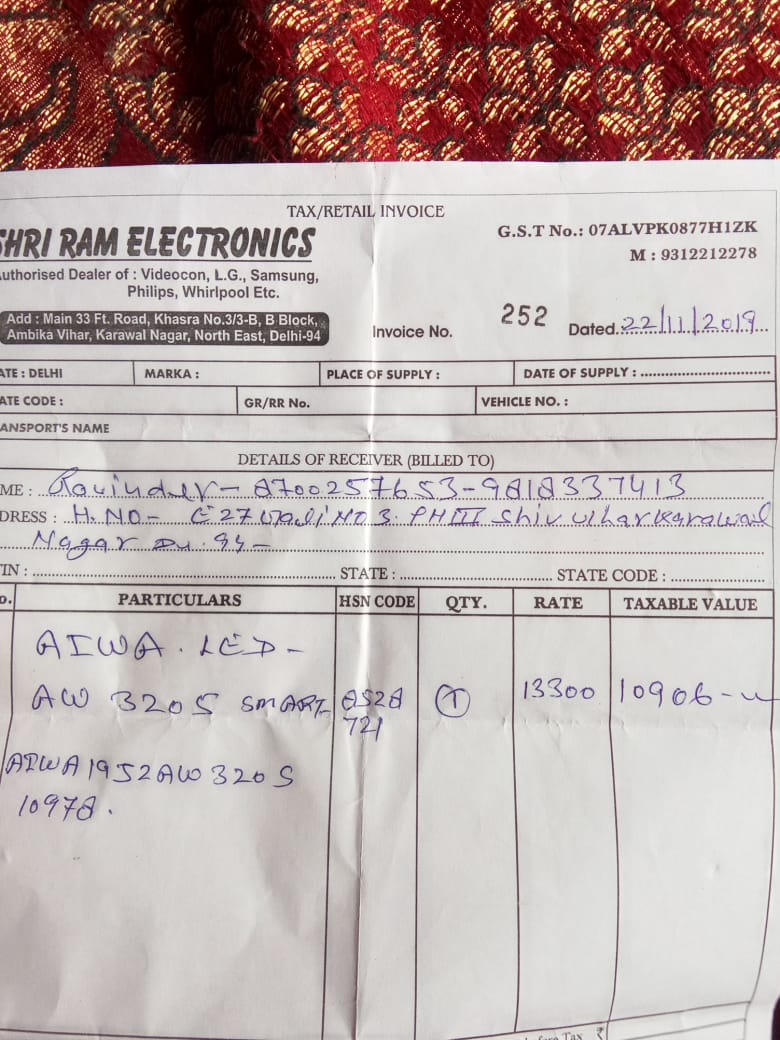 TAX/RETAIL INVOICE
SHRI RAM ELECTRONICS
G.S.T No.: 07ALVPK0877H1ZK
M : 9312212278
uthorised Dealer of : Videocon, L.G., Samsung,
Philips, Whirlpool Etc.
Add : Main 33 Ft. Road, Khasra No.3/3-B, B Block,
Ambika Vihar, Karawal Nagar, North East, Delhi-94
Invoice No. 252 Dated. 22/11/2019
ATE : DELHI MARKA : PLACE OF SUPPLY : DATE OF SUPPLY :
ATE CODE : GR/RR No. VEHICLE NO. :
ANSPORT'S NAME
DETAILS OF RECEIVER (BILLED TO)
ME : Ravinder - 8700257653-9818337413
DRESS : H.NO- E27 Gali NO 3. PH III Shiv Vihar Karawal
Nagar 94-
TIN : STATE : STATE CODE :
o. PARTICULARS HSN CODE QTY. RATE TAXABLE VALUE
AIWA. LED-
AW 320S SMART 8528 1 13300 10906-
721
AIWA1952AW320S
10978.
before Tax ₹